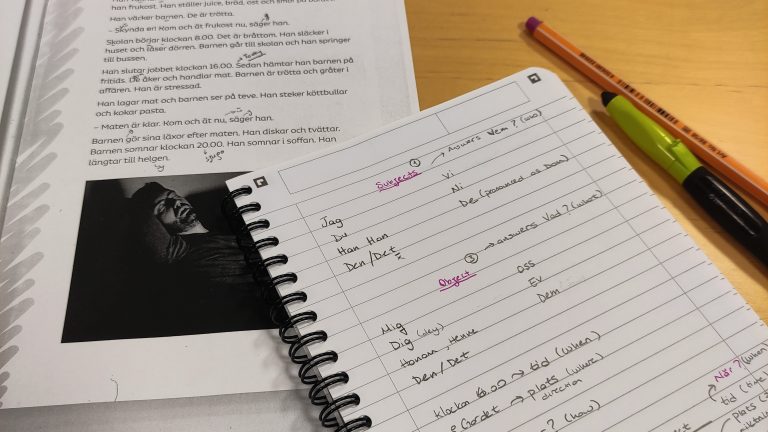 han frukost. Han ställer juice, bröd, ost och smör på
Han väcker barnen. De är trötta.
– Skynda er! Kom och ät frukost nu, säger han.
Skolan börjar klockan 8.00. Det är bråttom. Han släcker i
huset och låser dörren. Barnen går till skolan och han springer
till bussen.
Today
Han slutar jobbet klockan 16.00. Sedan hämtar han barnen på
fritids. De åker och handlar mat. Barnen är trötta och gråter i
affären. Han är stressad.
Han lagar mat och barnen ser på teve. Han steker köttbullar
och kokar pasta.
– Maten är klar. Kom och ät nu, säger han.
Barnen gör sina läxor efter maten. Han diskar och tvättar.
Barnen somnar klockan 20.00. Han somnar i soffan. Han
längtar till helgen.
① → Answers Vem? (who)
Subjects
Jag Vi
Du Ni
Han Hon De (pronounced as Dom)
Den/Det
③ → answers Vad? (what)
Object
Mig oss
Dig (dey) Er
Honom, Henne Dem
Den/Det
klockan → tid (when)
→ plats (where)
direction
? (how)
När? (when)
tid (
plats (